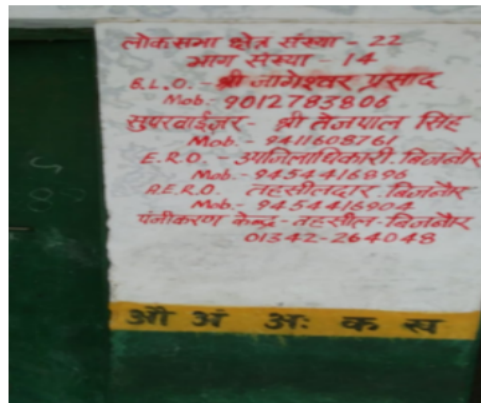 लोकसभा क्षेत्र संख्या - 22
भाग संख्या - 14
B.L.O. - श्री जागेश्वर प्रसाद
Mob.- 9012783806
सुपरवाईज़र - श्री तेजपाल सिंह
Mob.- 9411608761
E.R.O. - उपजिलाधिकारी. बिजनौर
Mob.- 9454416896
A.E.R.O. तहसीलदार. बिजनौर
Mob.- 9454416904
पंजीकरण केन्द्र - तहसील - बिजनौर
01342-264048
औ अं अः क ख